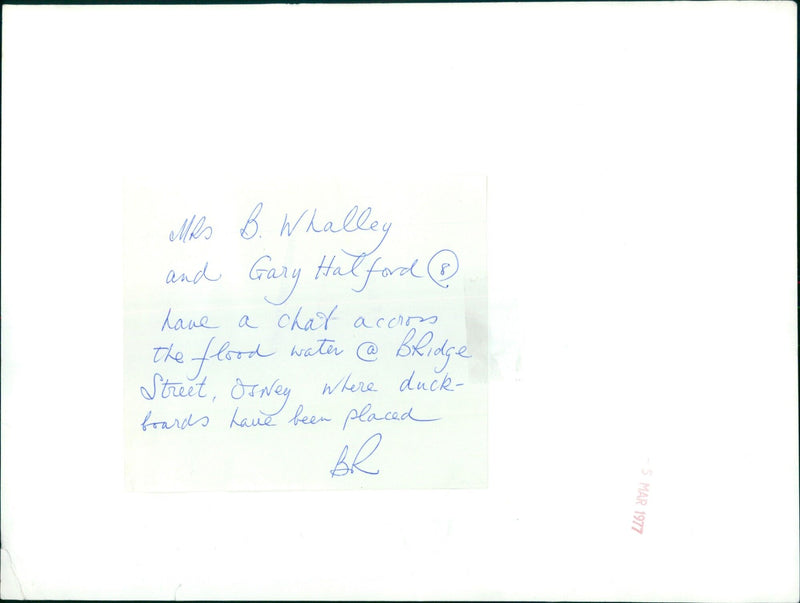 Mrs B. Whalley
and Gary Halford 8
have a chat accross
the flood water @ BRidge
Street, Osney where duck-
boards have been placed
BR
- 3 MAR 1977